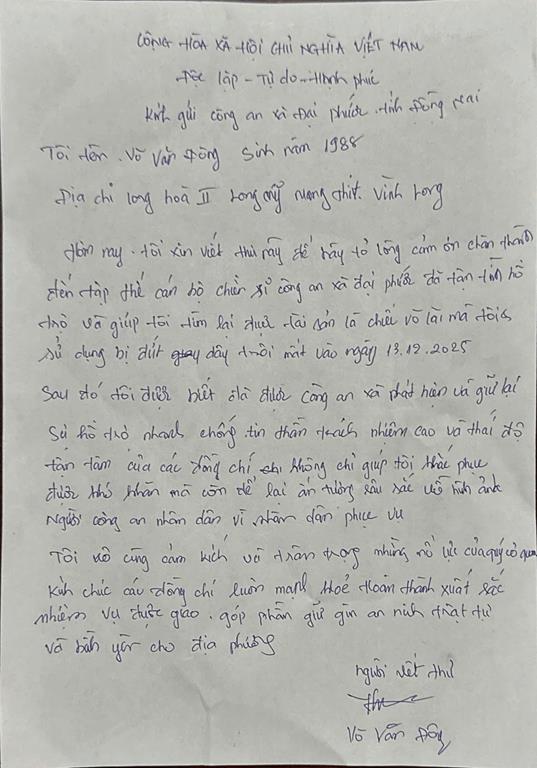 CỘNG HÒA XÃ HỘI CHỦ NGHĨA VIỆT NAM
Độc lập - Tự do - Hạnh phúc
Kính gửi công an xã Đại Phước. tỉnh Đồng Nai
Tôi tên. Võ Văn Đông Sinh năm 1988
Địa chỉ long hoà II Long mỹ mang thít. Vĩnh Long
Hôm nay. tôi xin viết thư này để bày tỏ lòng cảm ơn chân thành
đến tập thể cán bộ chiến sĩ công an xã đại phước đã tận tình hồ
trợ và giúp tôi tìm lại được tài sản là chiếc võ lãi mà tôi
sử dụng bị đứt dây trôi mất vào ngày 13.12.2025
Sau đó tôi được biết đã được công an xã phát hiện và giữ lại
Sự hỗ trợ nhanh chống, tin thần trách nhiệm cao và thái độ
tận tâm của các đồng chí không chỉ giúp tôi khắc phục
được khó khăn mà còn để lại ấn tượng sâu sắc về hình ảnh
Người công an nhân dân vì nhân dân phục vụ
Tôi vô cùng cảm kích và trân trọng những nổ lực của quý cơ quan
Kính chúc các đồng chí luôn mạnh khoẻ hoàn thành xuất sắc
nhiệm vụ được giao. góp phần giữ gìn an ninh trật tự
và bình yên cho địa phương
người viết thư
Võ Văn Đông